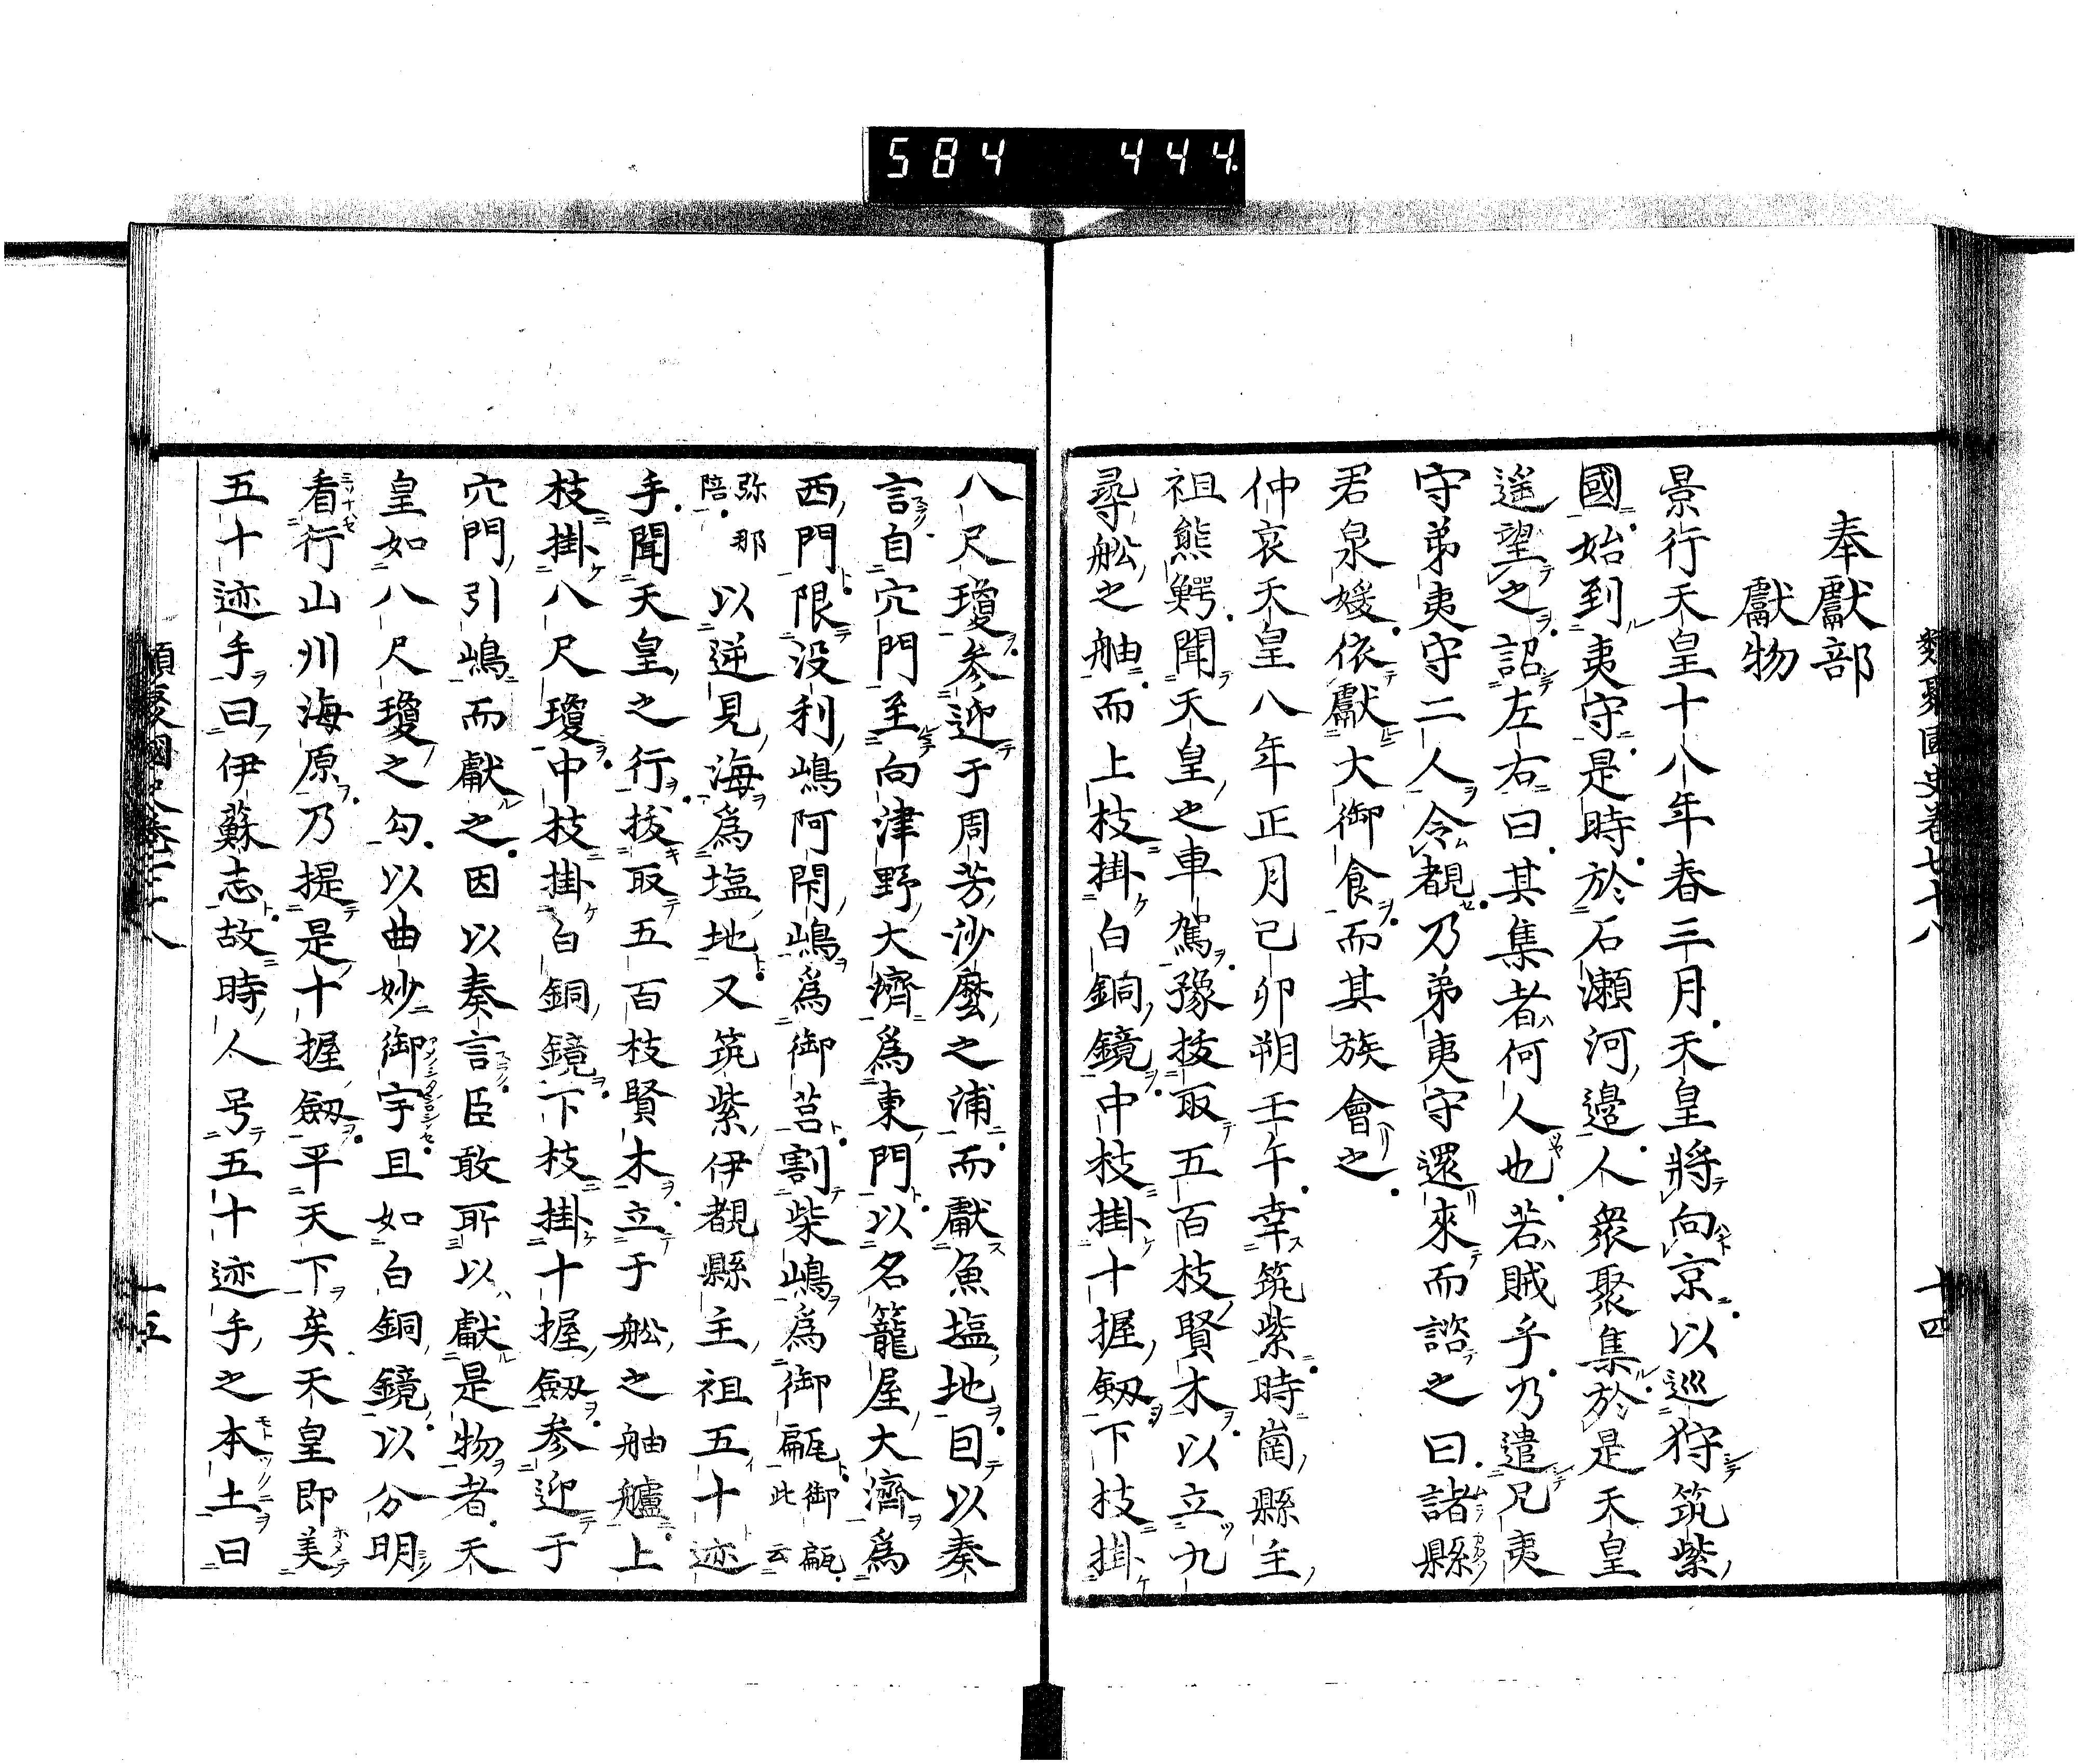 584 444
類聚國史卷七十八 十四
奉獻部
獻物
景行天皇十八年春三月天皇將向京以巡狩筑紫
國始到夷守是時於石瀬河邊人衆聚集於是天皇
遥望之詔左右曰其集者何人也若賊乎乃遣兄夷
守弟夷守二人令覩乃弟夷守還來而諮之曰諸縣
君泉媛依獻大御食而其族會之
仲哀天皇八年正月己卯朔壬午幸筑紫時崗縣主
祖熊鰐聞天皇之車駕豫拔取五百枝賢木以立九
尋舩之舳而上枝掛白銅鏡中枝掛十握剱下枝掛
八尺瓊参迎于周芳沙麼之浦而獻魚塩地因以奏
言自穴門至向津野大濟爲東門以名籠屋大濟爲
西門限没利嶋阿閇嶋爲御筥割柴嶋爲御甂御甂此云
弥那陪以逆見海爲塩地又筑紫伊覩縣主祖五十迹
手聞天皇之行拔取五百枝賢木立于舩之舳艫上
枝掛八尺瓊中枝掛白銅鏡下枝掛十握劔参迎于
穴門引嶋而獻之因以奏言臣敢所以獻是物者天
皇如八尺瓊之勾以曲妙御宇且如白銅鏡以分明
看行山川海原乃提是十握劔平天下矣天皇即美
五十迹手曰伊蘇志故時人号五十迹手之本土曰
類聚國史卷七十八 十五